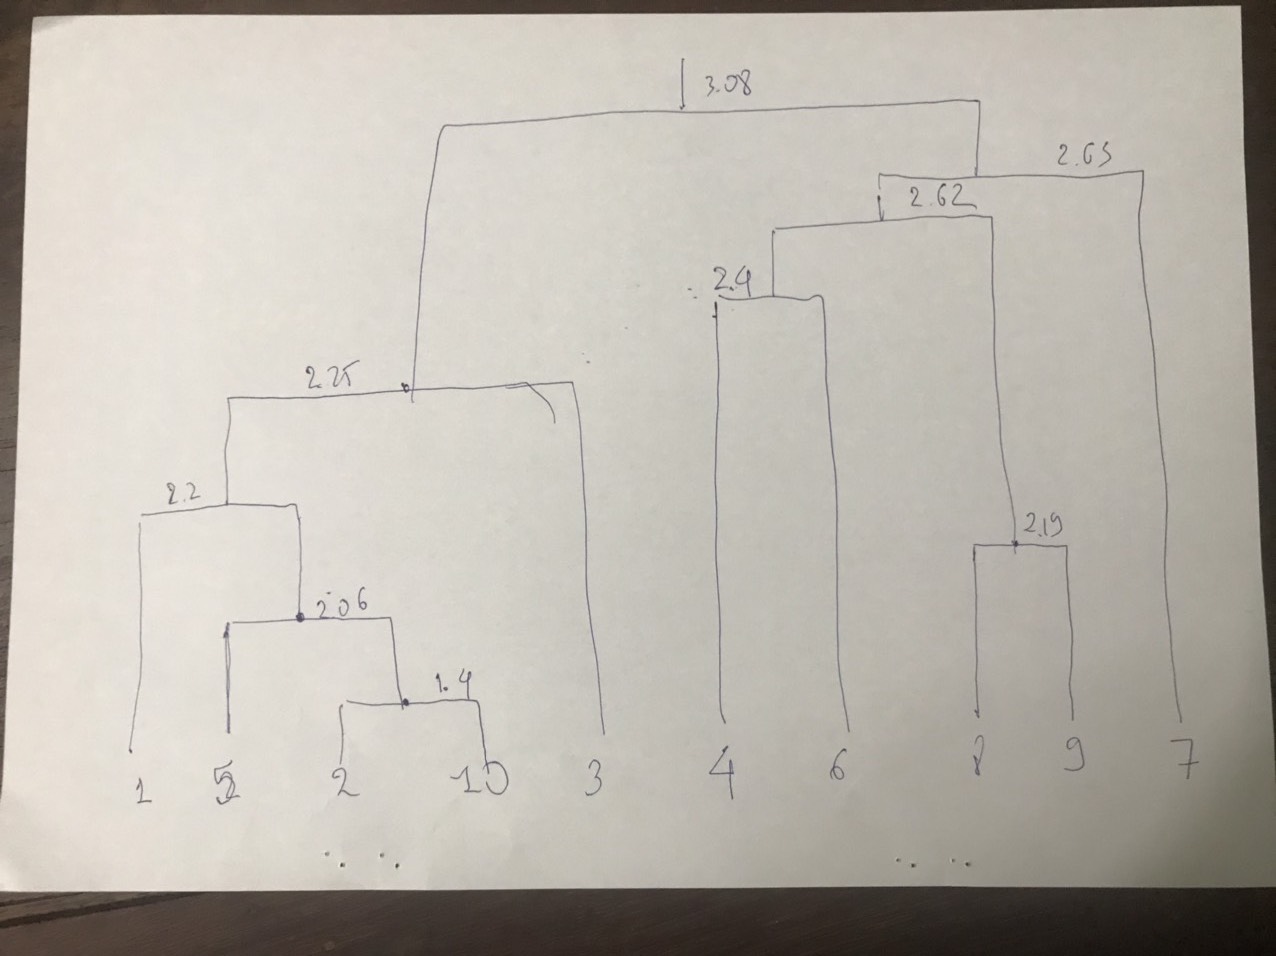 3.08
2.63
2.62
2.4
2.25
2.2
2.19
2.06
1.4
1 5 2 10 3 4 6 8 9 7